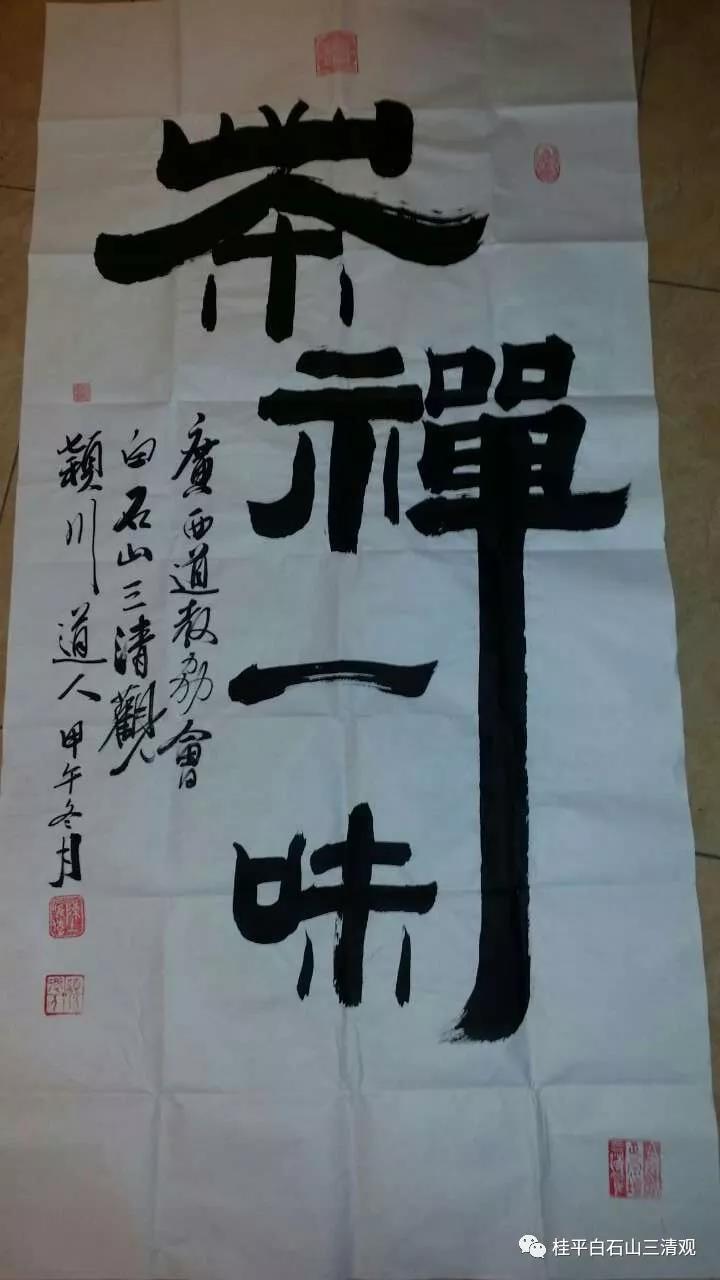 茶禪一味
廣西道教協會
白石山三清觀
穎川道人甲午冬月
桂平白石山三清观